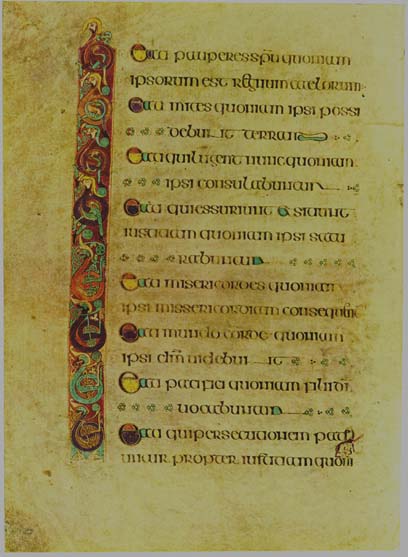 Eati pauperes spu quoniam
ipsorum est regnum caelorum
Eati mites quoniam ipsi possi
debunt terram
Eati qui lugent nunc quoniam
ipsi consulabuntur
Eati qui essuriunt & sitiunt
iustitiam quoniam ipsi satu
rabuntur
Eati misericordes quoniam
ipsi missericordiam consequntur
Eati mundo corde quoniam
ipsi dm videbunt
Eati pacifici quoniam filii di
vocabuntur
Eati qui persecutionem pati
untur propter iustitiam quoni